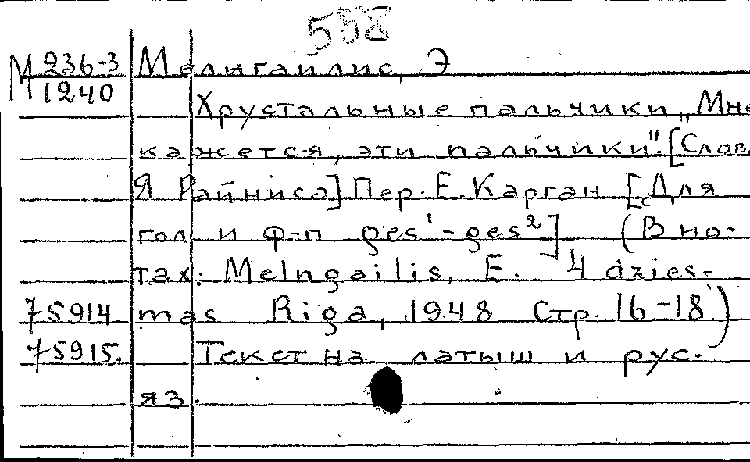 558
М 236-3 Мелнгайлис, Э
1240 Хрустальные пальчики „Мне
кажется, эти пальчики". [Слова
Я Райниса] Пер. Е. Карган [Для
гол и ф-п ges¹-ges²] (В но-
тах: Melngailis, E. 4 dzies-
75914 mas Riga, 1948 Стр 16-18)
75915. Текст на латыш и рус.
яз.